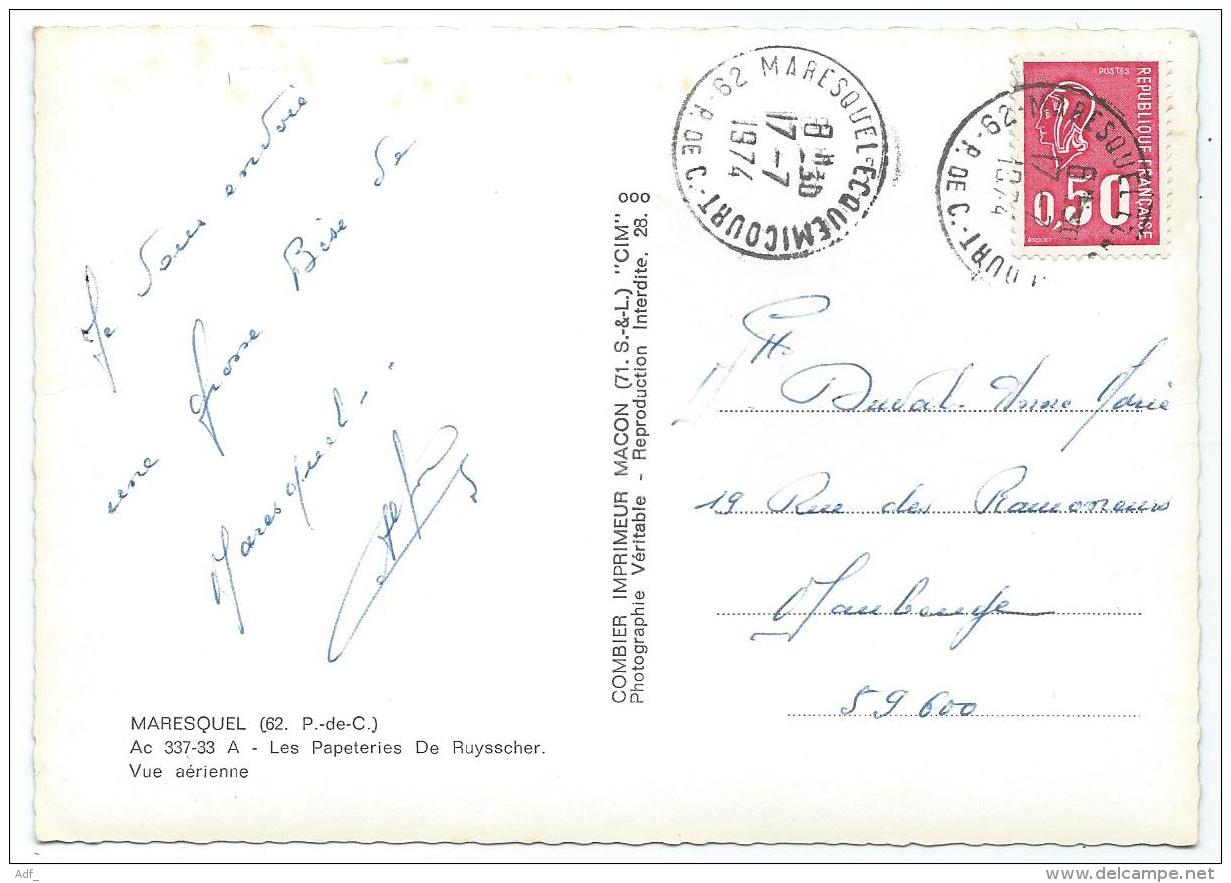 Je vous envoie
une grosse Bise de
Maresquel.
MARESQUEL (62. P.-de-C.)
Ac 337-33 A - Les Papeteries De Ruysscher.
Vue aérienne
COMBIER IMPRIMEUR MACON (71. S.-&-L.) "CIM" ooo
Photographie Véritable - Reproduction Interdite. 28.
62 MARESQUEL-ECQUEMICOURT - P. DE C.
8H30
17-7
1974
POSTES
REPUBLIQUE FRANÇAISE
0,50
62-MARESQUEL
P. DE C.
1974
Duval Anne Marie
19 Rue des Ramoneurs
Maubeuge
59600
Adf_
www.delcampe.net